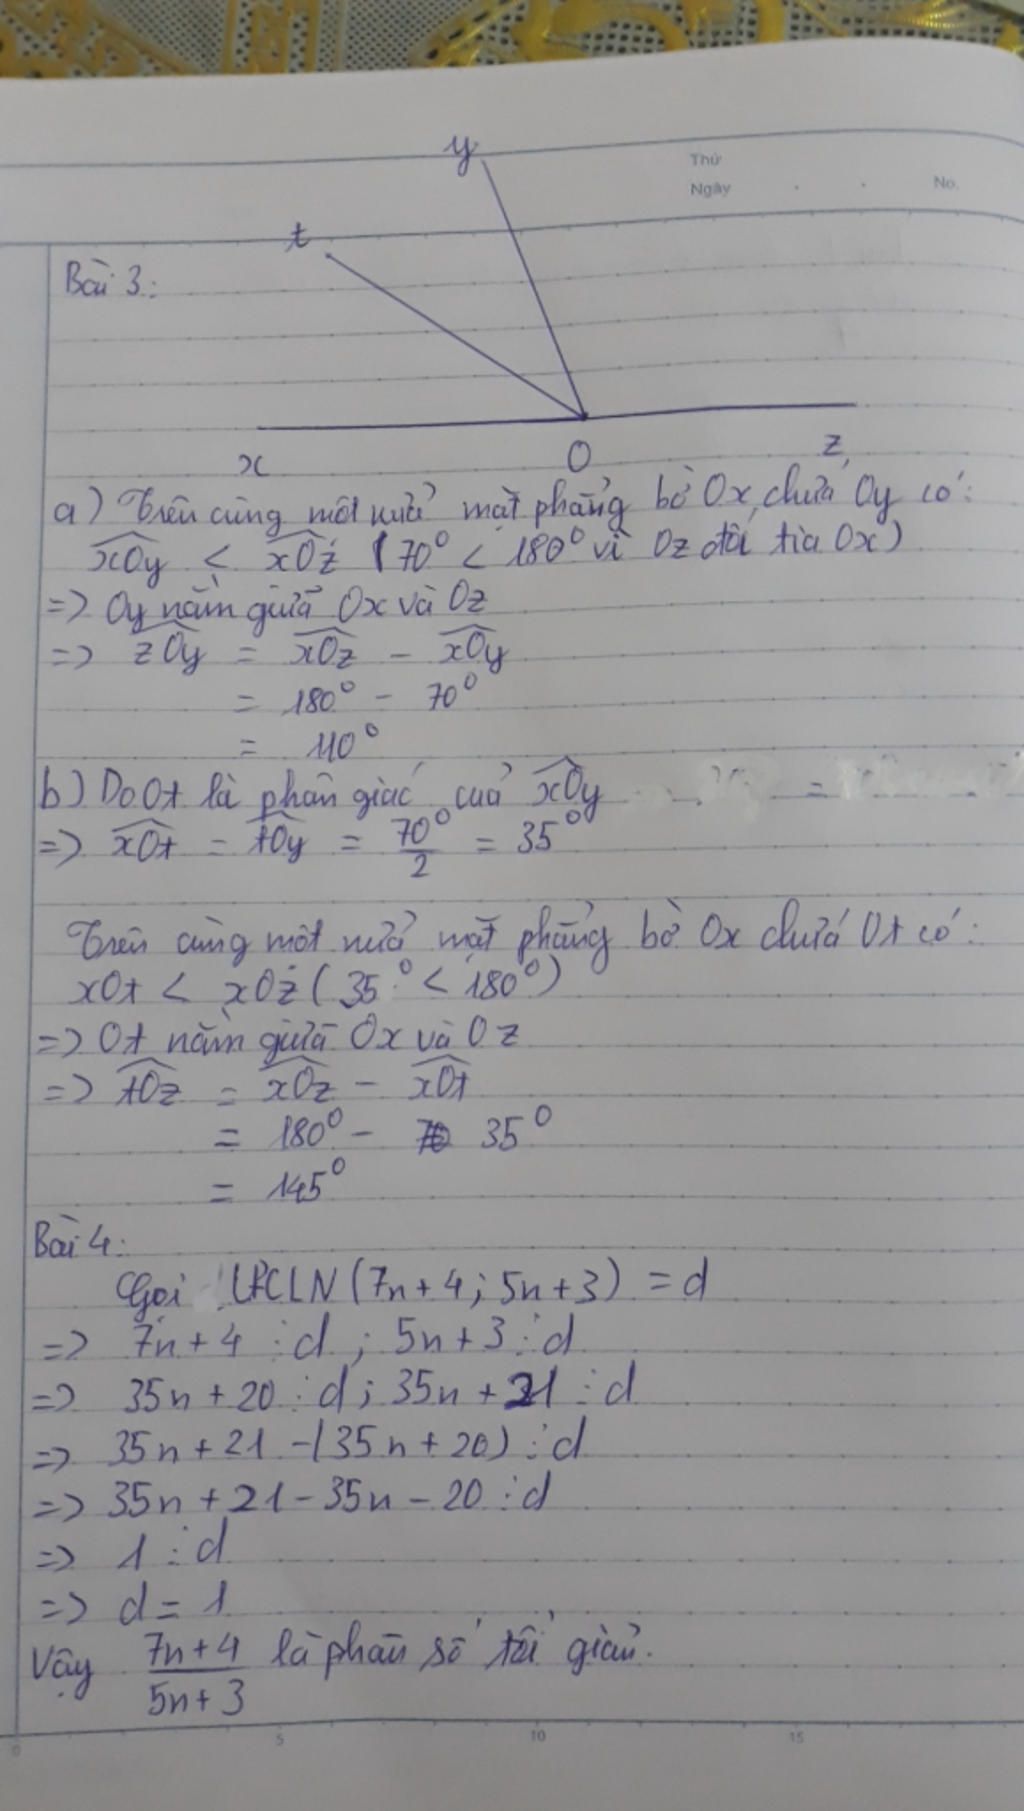 y
Thứ
Ngày . . No.
t
Bài 3:
x O z
a) Trên cùng một nửa mặt phẳng bờ Ox, chứa Oy có:
xOy < xOz (70° < 180° vì Oz đối tia Ox)
=> Oy nằm giữa Ox và Oz
=> zOy = xOz - xOy
= 180° - 70°
= 110°
b) Do Ot là phân giác của xOy
=> xOt = tOy = 70°/2 = 35°
Trên cùng một nửa mặt phẳng bờ Ox chứa Ot có:
xOt < xOz (35° < 180°)
=> Ot nằm giữa Ox và Oz
=> tOz = xOz - xOt
= 180° - 35°
= 145°
Bài 4:
Gọi ƯCLN (7n+4; 5n+3) = d
=> 7n+4 ⋮ d ; 5n+3 ⋮ d
=> 35n+20 ⋮ d; 35n+21 ⋮ d
=> 35n+21 -(35n+20) ⋮ d
=> 35n+21-35n-20 ⋮ d
=> 1 ⋮ d
=> d = 1
Vậy 7n+4/5n+3 là phân số tối giản.
0 5 10 15